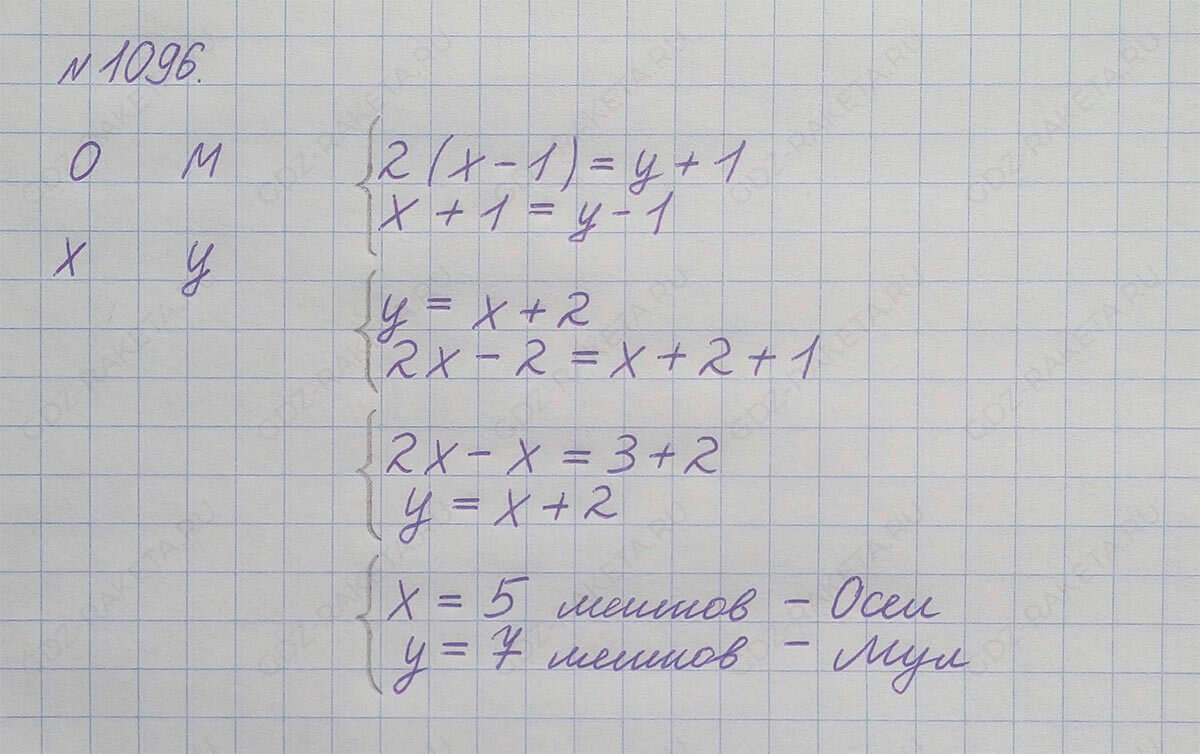 №1096.
О М
x y
2(x-1)=y+1
x+1=y-1
y=x+2
2x-2=x+2+1
2x-x=3+2
y=x+2
x=5 мешков - Осел
y=7 мешков - Мул
GDZ-RAKETA.RU